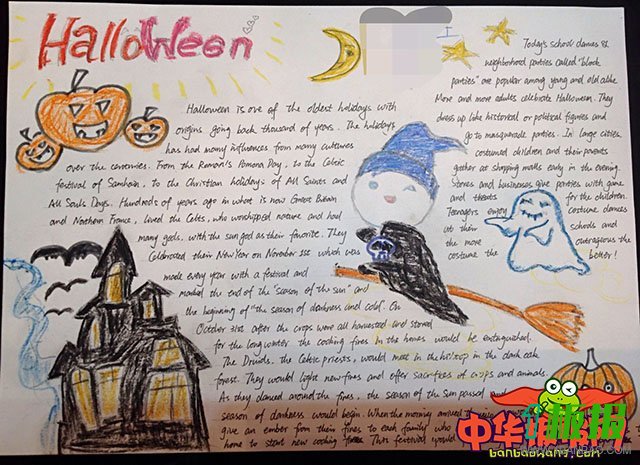 HalloWeen
Halloween is one of the oldest holidays with
origins going back thousand of years. The holidays
has had many influences from many cultures
over the cenvernies. From the Roman's Pomona Day, to the Celtic
festival of Samhain, to the Christian holidays of All Saints and
All Souls Days. Hundreds of years ago in what is now Great Britain
and Northern France, lived the Celts, who worshipped nature and had
many gods. with the sun god as their favorite. They
Celebrated their New Year on November 1st which was
made every year with a festival and
marked the end of the "season of the sun" and
the beginning of "the season of darkness and cold". On
October 31st after the crops were all harvested and stored
for the long winter the cooking fires in the homes would be extinguished.
The Druids, the Celtic priests, would meet in the hilltop in the dark oak
forest. They would light new fires and offer sacrifices of crops and animals.
As they danced around the fires, the season of the Sun passed
season of darkness would begin. When the morning arrived
give an ember from their fires to each family who
home to start new cooking fires. This festival would
Today's school dances &
neighborhood parties called "block
parties" are popular among young and old alike
More and more adults celebrate Halloween. They
dress up like historical or political figures and
go to masquerade parties. In large cities,
costumed children and their parents
gather at shopping malls early in the evening.
Stores and businesses give parties with game
and threats for the children.
Teenagers enjoy costume dances
at their schools and
the more outrageous the
costume the better!
中华
banbaowang.com